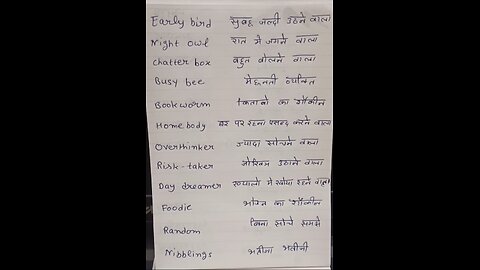 Early bird सुबह जल्दी उठने वाला
Night owl रात में जगने वाला
chatter box बहुत बोलने वाला
Busy bee मेहनती व्यक्ति
Bookworm किताबों का शौकीन
Home body घर पर रहना पसन्द करने वाला
Overthinker ज्यादा सोचने वाला
Risk-taker जोखिम उठाने वाला
Day dreamer ख्यालों में खोया रहने वाला
Foodie भोजन का शौकीन
Random बिना सोचे समझे
Nibblings भतीजा भतीजी